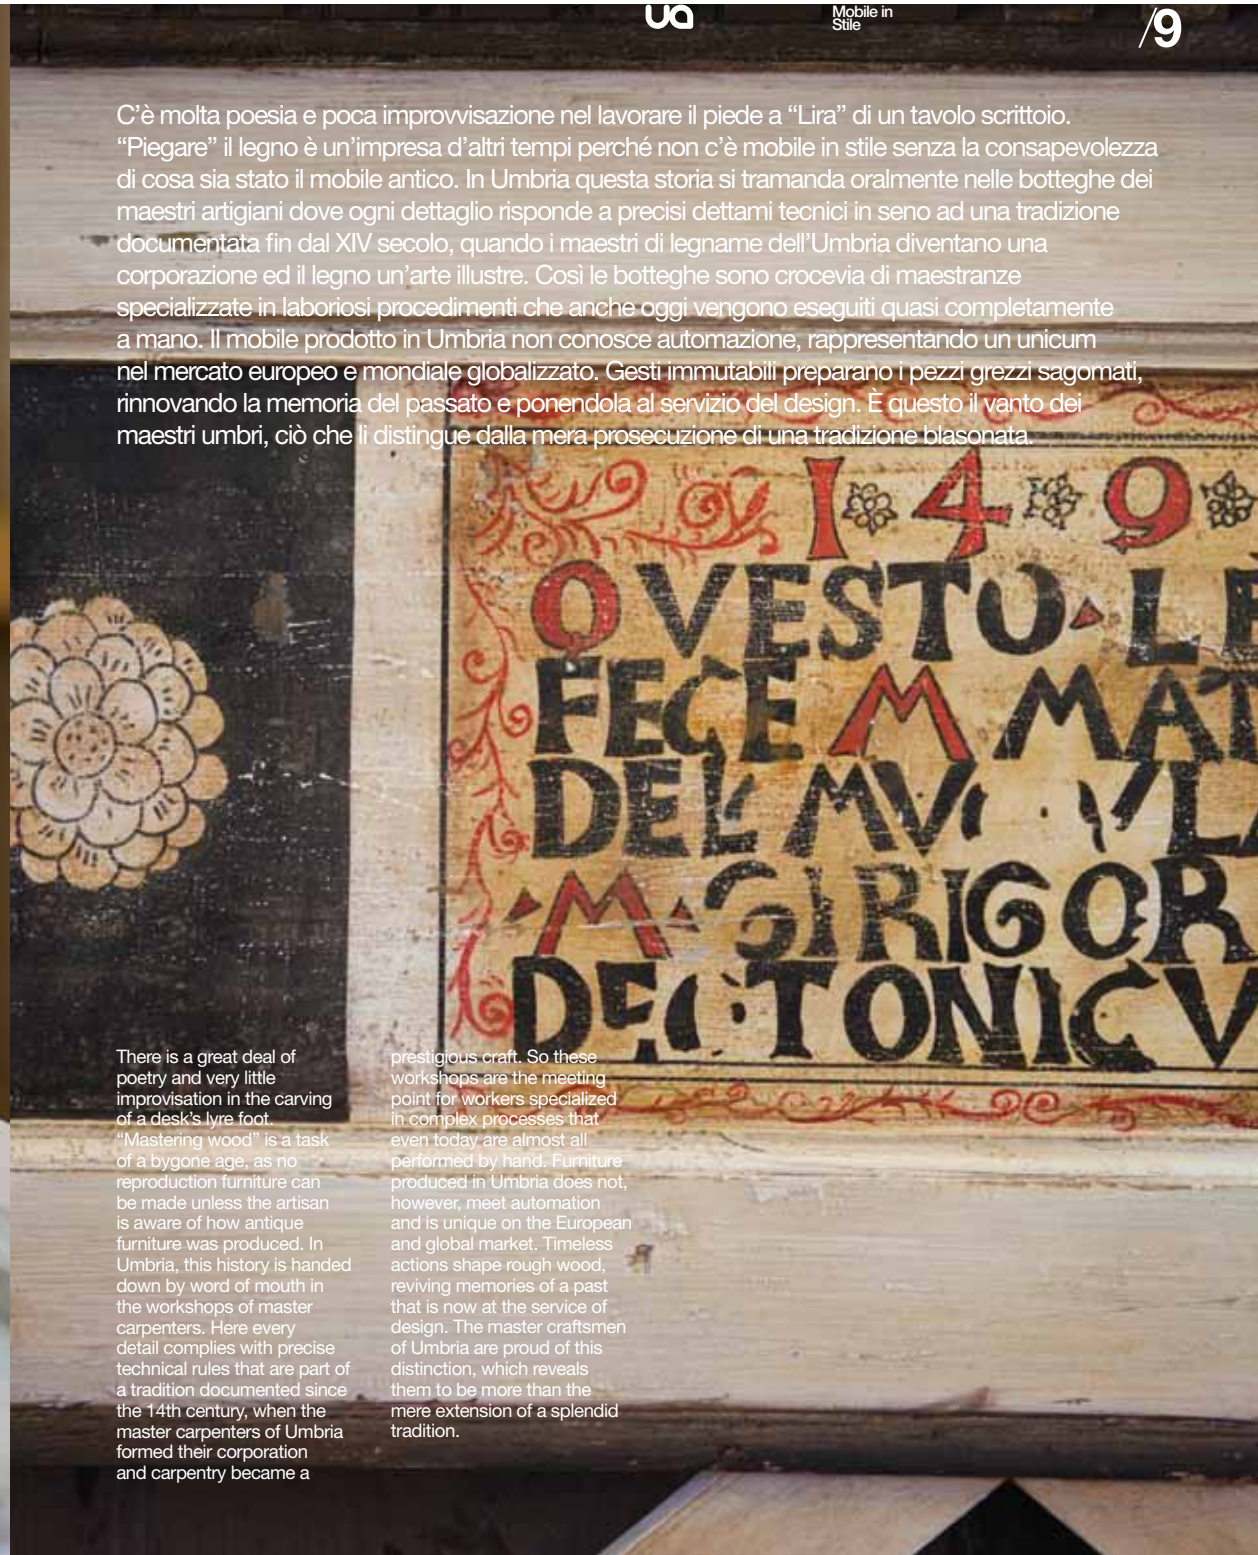 ua
Mobile in
Stile
/9
C’è molta poesia e poca improvvisazione nel lavorare il piede a “Lira” di un tavolo scrittoio.
“Piegare” il legno è un’impresa d’altri tempi perché non c’è mobile in stile senza la consapevolezza
di cosa sia stato il mobile antico. In Umbria questa storia si tramanda oralmente nelle botteghe dei
maestri artigiani dove ogni dettaglio risponde a precisi dettami tecnici in seno ad una tradizione
documentata fin dal XIV secolo, quando i maestri di legname dell’Umbria diventano una
corporazione ed il legno un’arte illustre. Così le botteghe sono crocevia di maestranze
specializzate in laboriosi procedimenti che anche oggi vengono eseguiti quasi completamente
a mano. Il mobile prodotto in Umbria non conosce automazione, rappresentando un unicum
nel mercato europeo e mondiale globalizzato. Gesti immutabili preparano i pezzi grezzi sagomati,
rinnovando la memoria del passato e ponendola al servizio del design. È questo il vanto dei
maestri umbri, ciò che li distingue dalla mera prosecuzione di una tradizione blasonata.
1 4 9
QVESTO L
FECE M MAT
DEL
M GIRIGOR
There is a great deal of
poetry and very little
improvisation in the carving
of a desk’s lyre foot.
“Mastering wood” is a task
of a bygone age, as no
reproduction furniture can
be made unless the artisan
is aware of how antique
furniture was produced. In
Umbria, this history is handed
down by word of mouth in
the workshops of master
carpenters. Here every
detail complies with precise
technical rules that are part of
a tradition documented since
the 14th century, when the
master carpenters of Umbria
formed their corporation
and carpentry became a
prestigious craft. So these
workshops are the meeting
point for workers specialized
in complex processes that
even today are almost all
performed by hand. Furniture
produced in Umbria does not,
however, meet automation
and is unique on the European
and global market. Timeless
actions shape rough wood,
reviving memories of a past
that is now at the service of
design. The master craftsmen
of Umbria are proud of this
distinction, which reveals
them to be more than the
mere extension of a splendid
tradition.